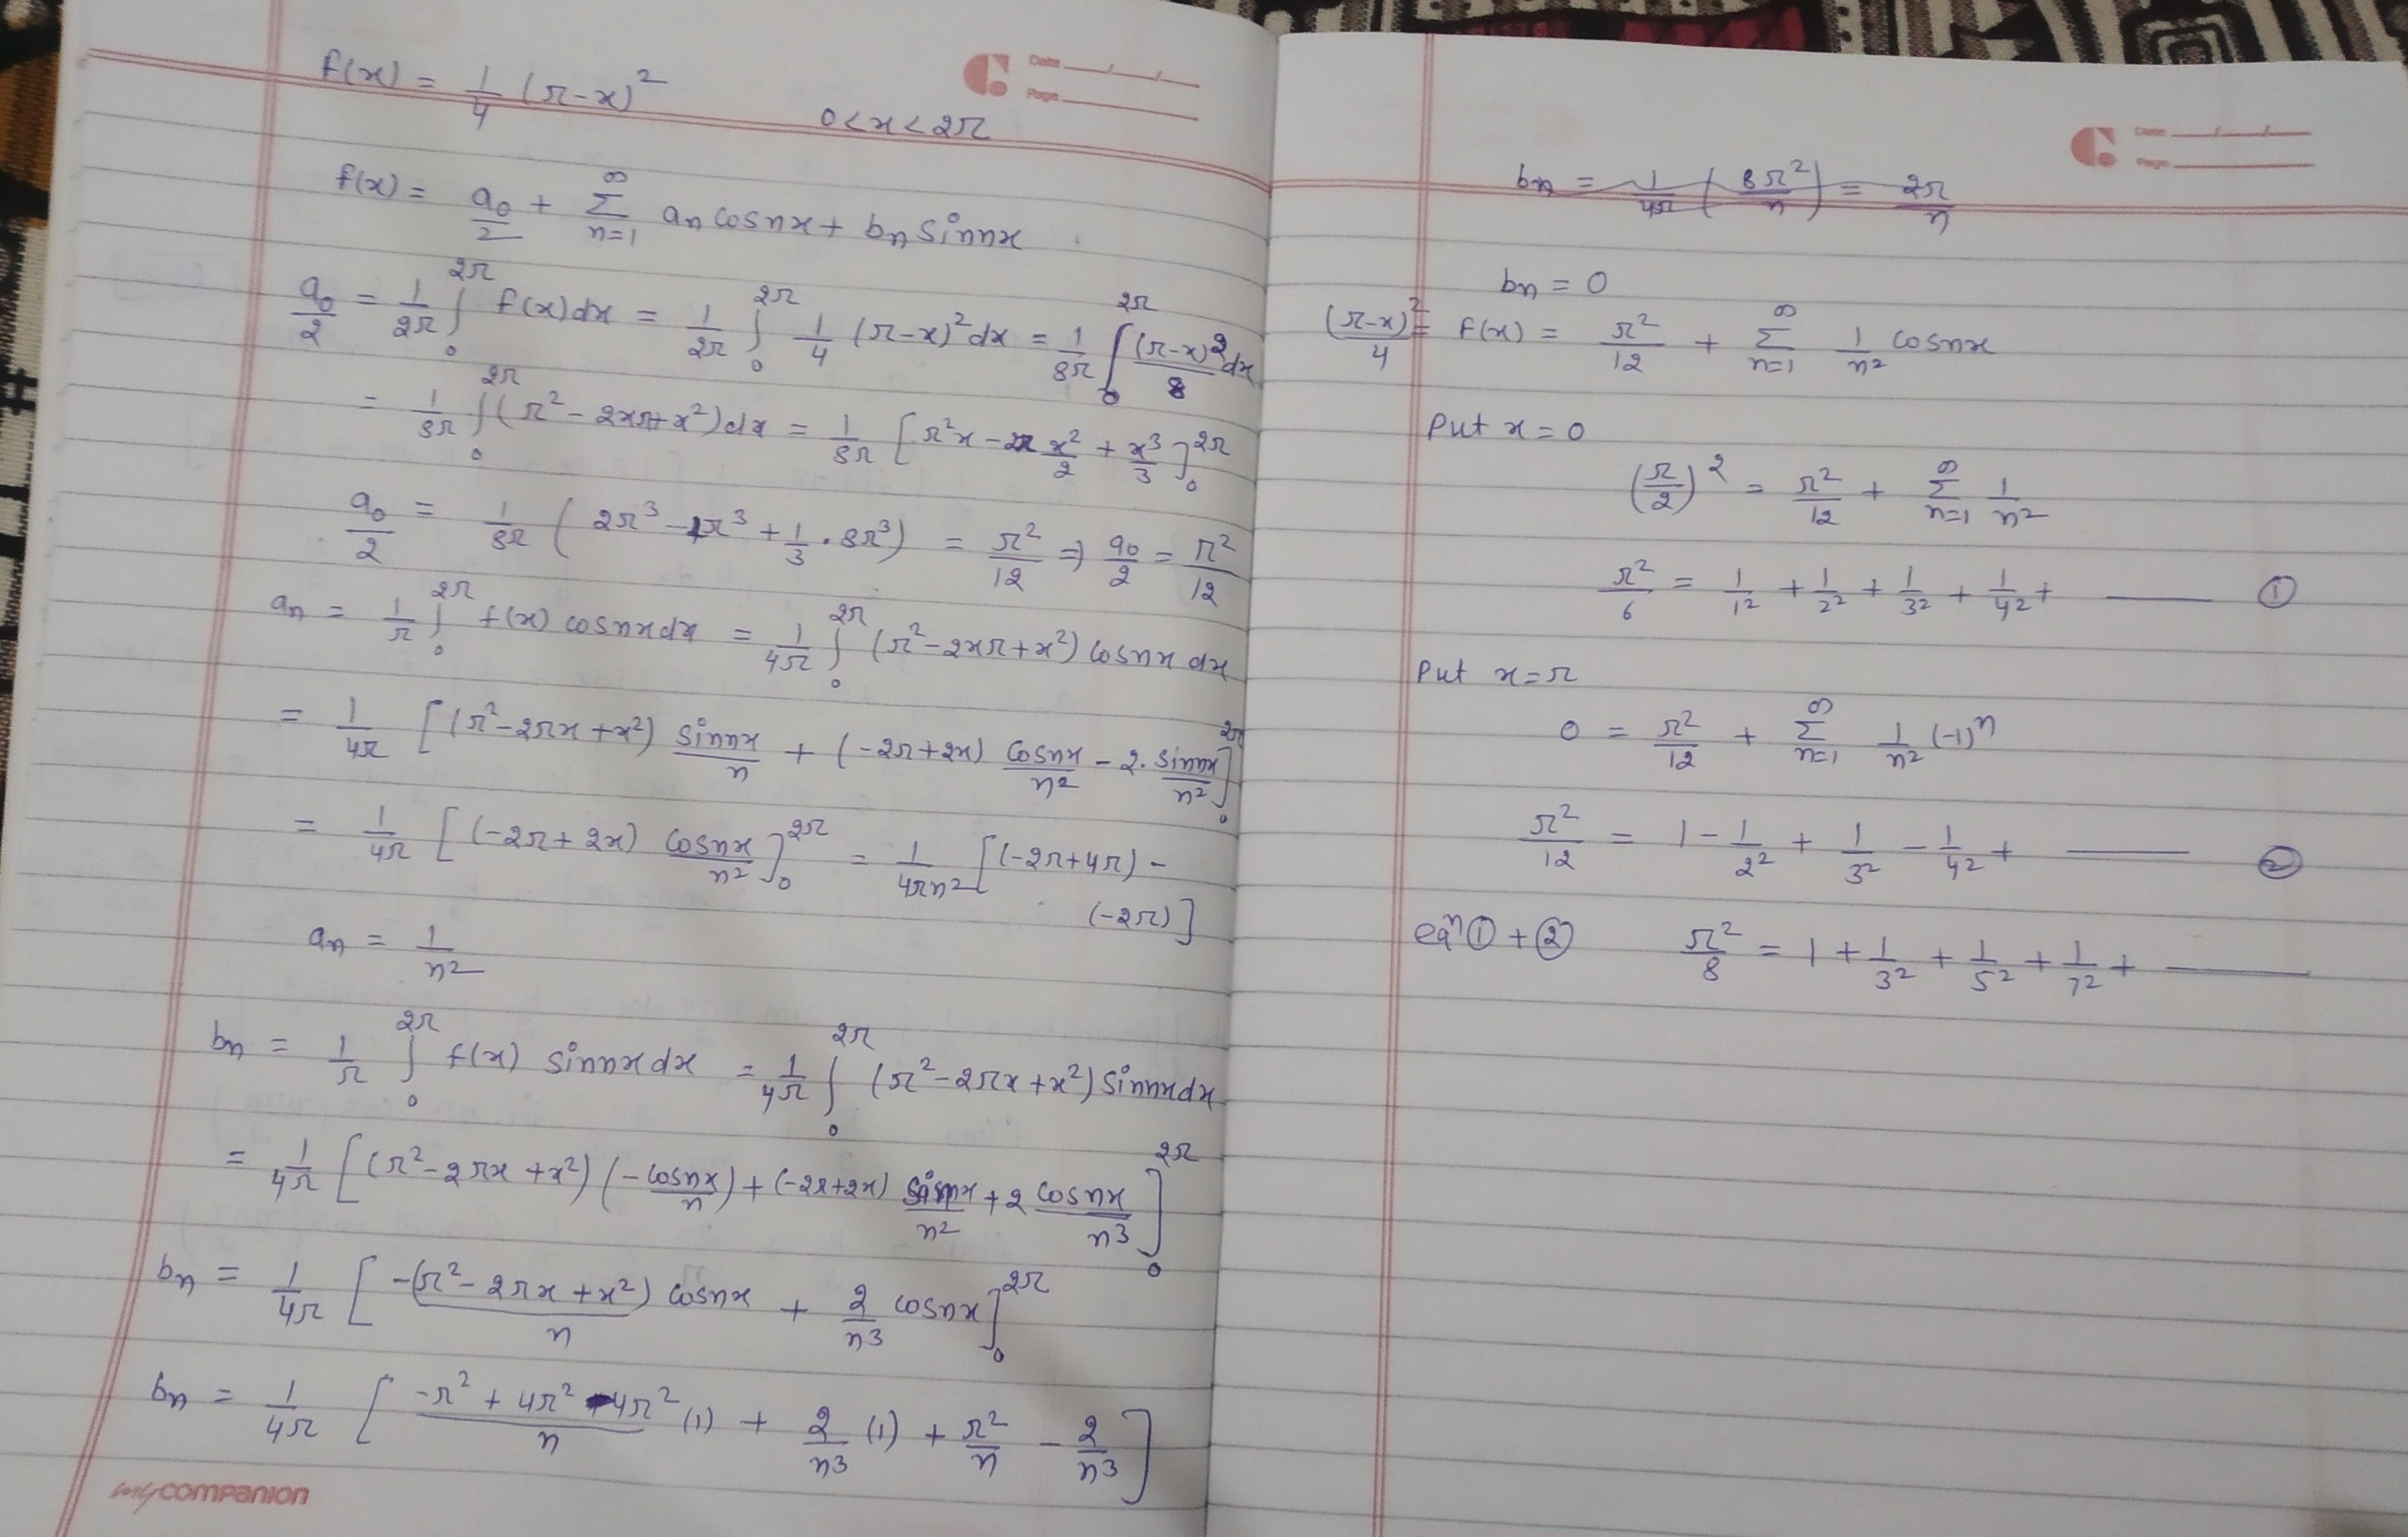 f(x) = 1/4 (π-x)² 0<x<2π
Date / /
Page
f(x) = a₀/2 + ∞Σn=1 aₙ cosnx + bₙ sinnx
a₀/2 = 1/2π ∫₀^2π f(x)dx = 1/2π ∫₀^2π 1/4 (π-x)² dx = 1/8π ∫₀^2π (π-x)²/8 dx
= 1/8π ∫₀^2π (π² - 2xπ + x²)dx = 1/8π [π²x - 2π x²/2 + x³/3]₀^2π
a₀/2 = 1/8π (2π³ - 4π³ + 1/3 · 8π³) = π²/12 ⇒ a₀/2 = π²/12
aₙ = 1/π ∫₀^2π f(x) cosnx dx = 1/4π ∫₀^2π (π² - 2xπ + x²) cosnx dx
= 1/4π [(π² - 2πx + x²) sinnx/n + (-2π+2x) cosnx/n² - 2. sinnx/n²]₀^2π
= 1/4π [(-2π + 2x) cosnx/n²]₀^2π = 1/4πn² [(-2π+4π) -
(-2π)]
aₙ = 1/n²
bₙ = 1/π ∫₀^2π f(x) sinnx dx = 1/4π ∫₀^2π (π² - 2πx + x²) sinnx dx
= 1/4π [(π² - 2πx + x²) (-cosnx/n) + (-2π+2x) sinnx/n² + 2 cosnx/n³]₀^2π
bₙ = 1/4π [-(π² - 2πx + x²)/n cosnx + 2/n³ cosnx]₀^2π
bₙ = 1/4π [(-π² + 4π² - 4π²)/n (1) + 2/n³ (1) + π²/n - 2/n³]
my companion
Date / /
Page
bₙ = 1/4π (8π²/n) = 2π/n
bₙ = 0
(π-x)²/4 = f(x) = π²/12 + ∞Σn=1 1/n² cosnx
Put x = 0
(π/2)² = π²/12 + ∞Σn=1 1/n²
π²/6 = 1/1² + 1/2² + 1/3² + 1/4² + —— ①
Put x = π
0 = π²/12 + ∞Σn=1 1/n² (-1)ⁿ
π²/12 = 1 - 1/2² + 1/3² - 1/4² + —— ②
eqⁿ ① + ② π²/8 = 1 + 1/3² + 1/5² + 1/7² + ——